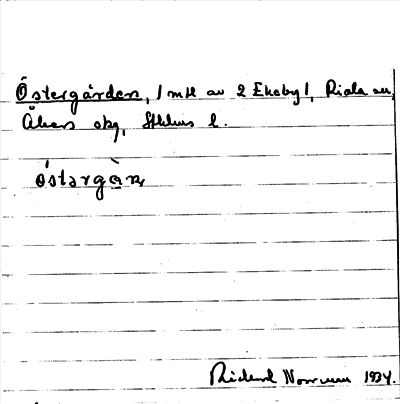 Östergården, 1 mtl av 2 Ekeby 1, Riala sn,
Åkers skg, Sthlms l.
östərgàṇ
Rickard 1934.